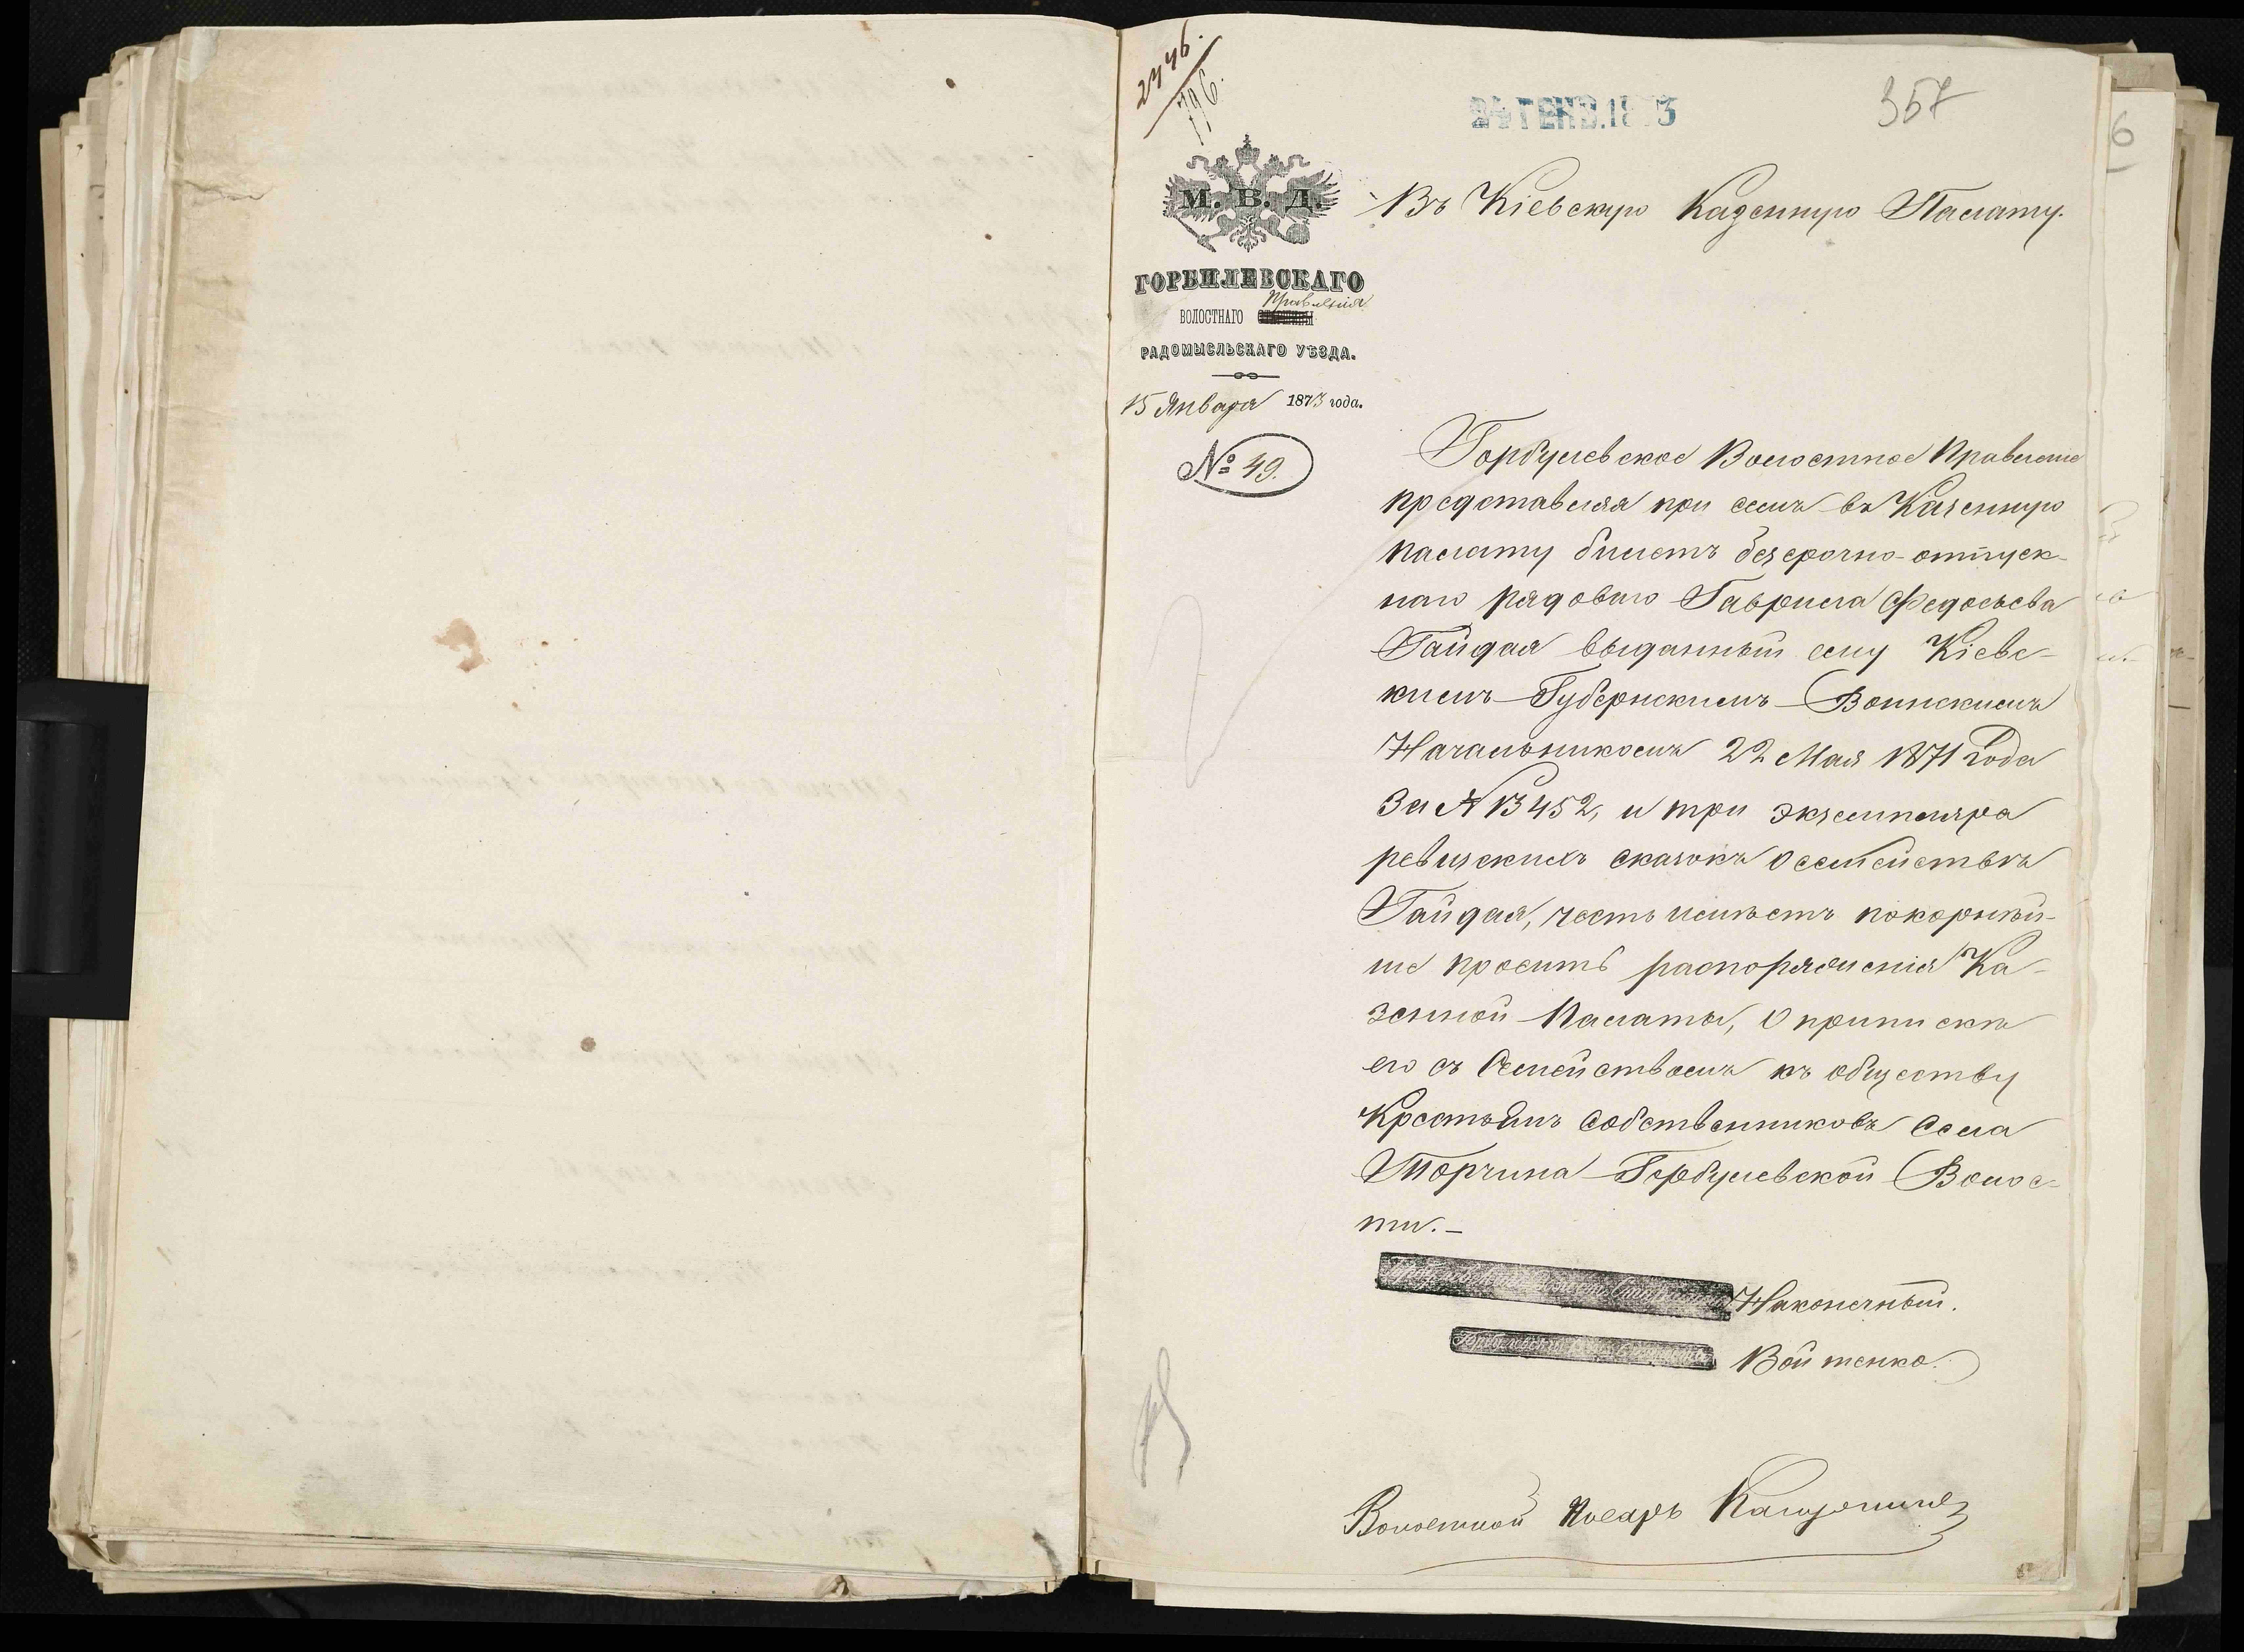 2746.
796.
24 ГЕНВ. 1873
357
6
М. В. Д.
Въ Кіевскую Казенную Палату.
ГОРБИЛЕВСКАГО
Правленія
ВОЛОСТНАГО СТАРШИНЫ
РАДОМЫСЛЬСКАГО УѢЗДА.
15 Января 1873 года.
№ 49.
Горбулевское Волостное Правленіе
представляя при семъ въ Казенную
палату билетъ безсрочно-отпуск-
наго рядоваго Гаврила Федосѣева
Гайдая выданный ему Кіевс-
кимъ Губернскимъ Воинскимъ
Начальникомъ 22 Мая 1871 Года
За № 13452, и три экземпляра
ревизскихъ сказокъ о семействѣ
Гайдая, честь имѣетъ покорнѣй-
ше просить распоряженія Ка-
зенной Палаты, о припискѣ
его съ Семействомъ къ обществу
Крестьянъ Собственниковъ Села
Торчина Горбулевской Волос-
ти.-
Наконечный.
Войтенко.
Волостной Писарь